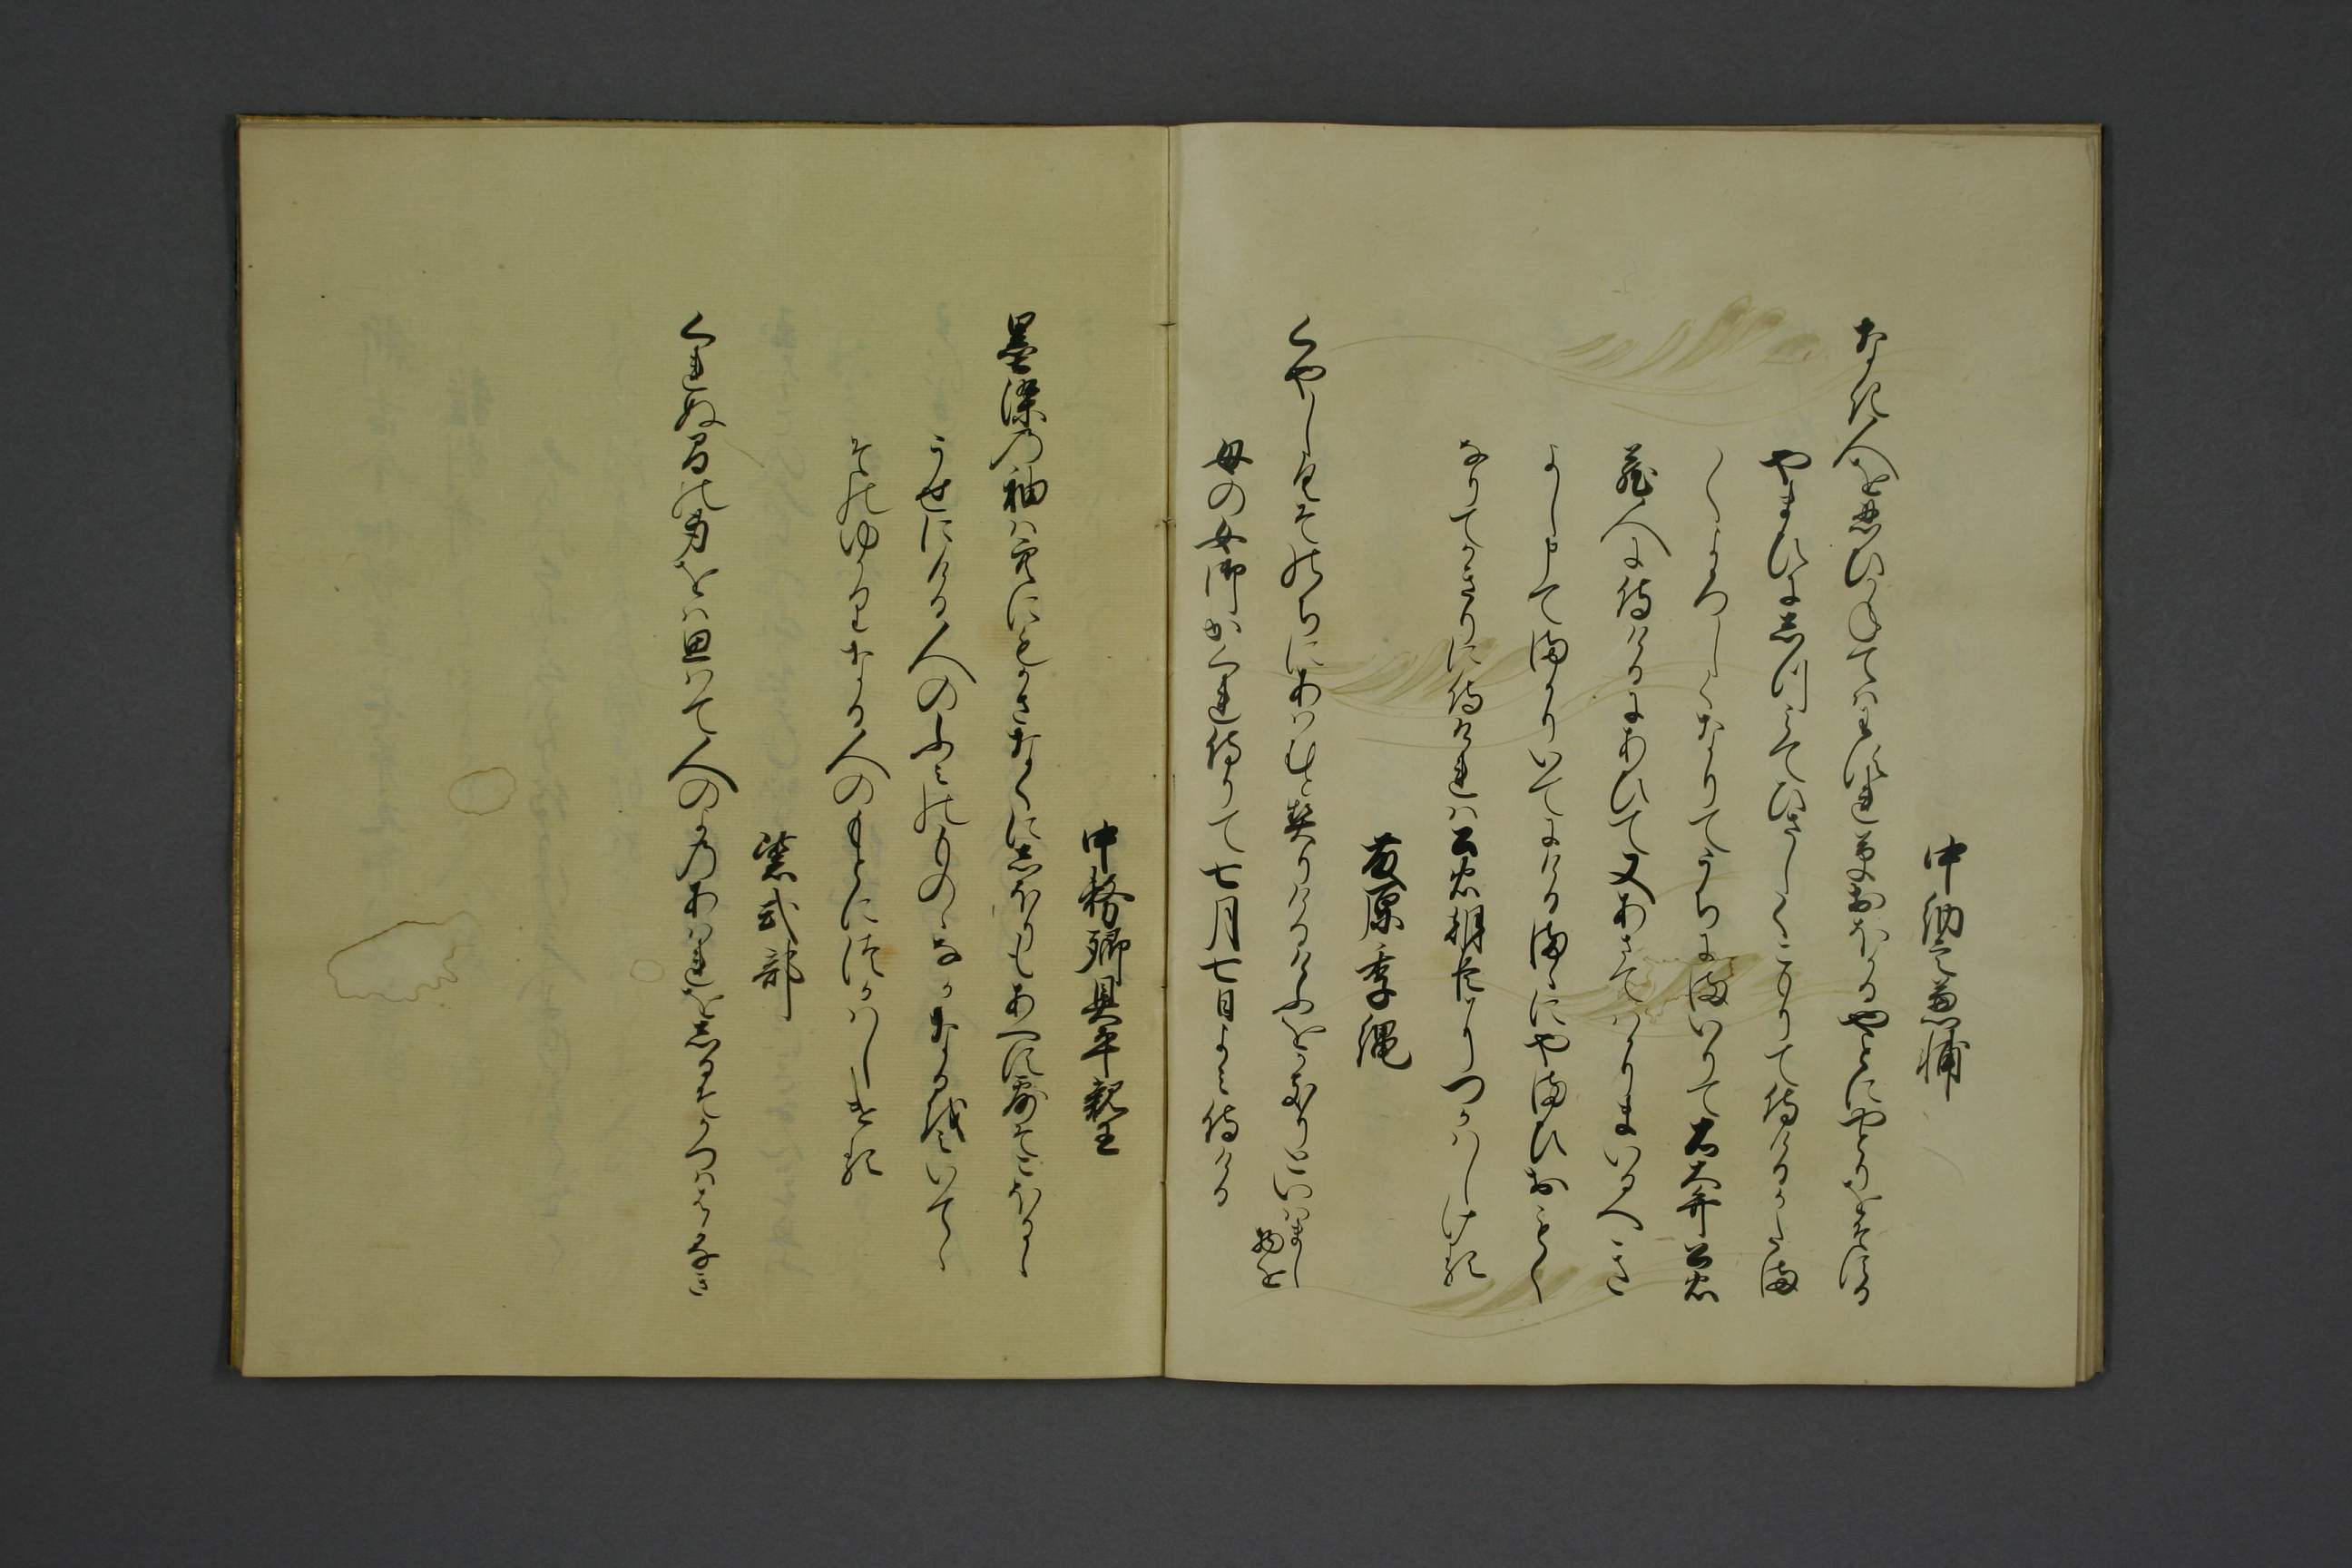 中納言兼輔
なき人を思ひかねてはわすれ草おほかるやとにやとりをそする
やまひにしつみてひさしくこもりて侍けるかたま
〱よろしくなりてうちにまいりて右大弁公忠
蔵人に侍けるにあひて又あさてはかりまいるへき
よし申てまかりいてにけるまゝにやまひおもく
なりてかきりに侍けれは公忠朝臣につかはしける
藤原季縄
くやしくそのちにあはむと契りけるけふをかきりといはまし物を
母の女御かくれ侍りて七月七日よみ侍ける
中務卿具平親王
墨染の袖は空にもかさなくにしほりもあへす露そこほるゝ
うせにける人のふみのものゝなかなるをみいてゝ
そのゆかりなる人のもとにつかはしける
紫式部
くれぬまの身をは思はて人のよのあはれをしるそかつははかなき